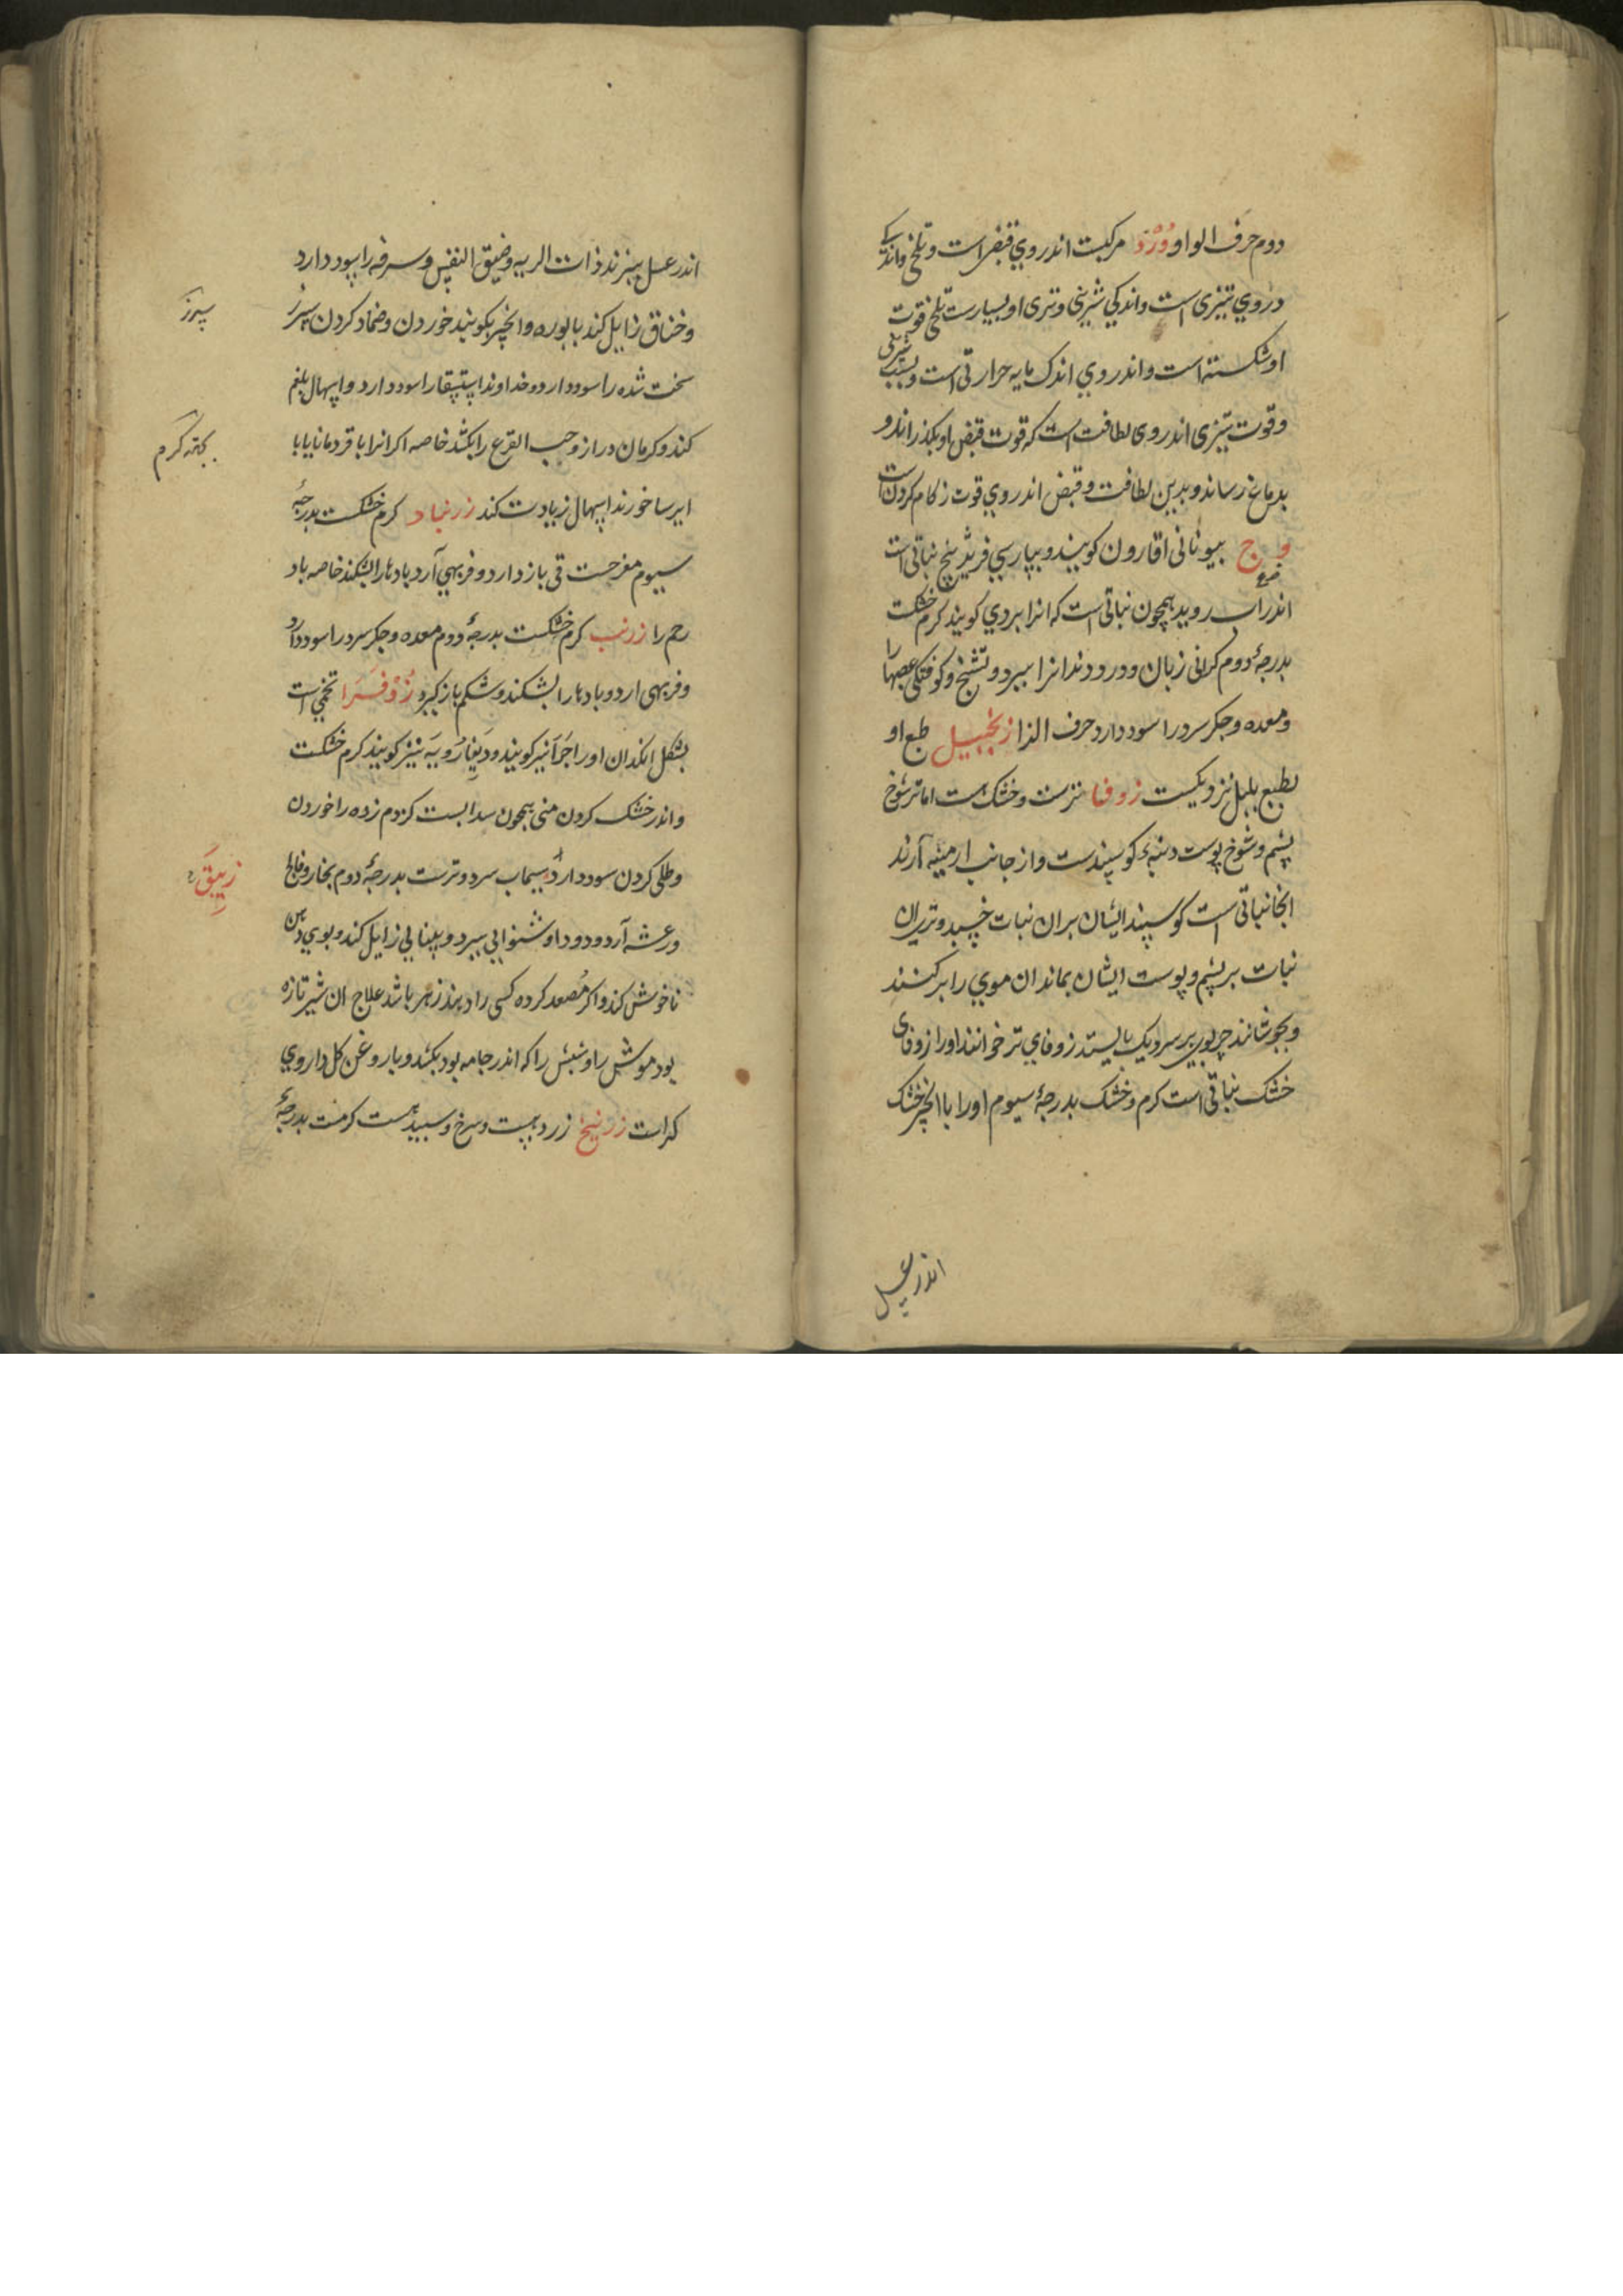 دوم حرف الواو وَرْد مرکبست اندر وی قبض است و تلخی و اندکی
در وی تیزی است و اندکی شیرینی و تری او بسیارست تلخی قوت
او شکسته است و اندر وی اندک مایه حرارتی است و بسبب تلخی
و قوت تیزی اندر وی لطافت است که قوت قبض او بگذراند و
بدماغ رساند و بدین لطافت و قبض اندر وی قوت زکام کردن است
وج بیونانی اقارون کویند و بپارسی بیخ نباتی است
اندر آب روید همچون نباتی است که انرا بردی کویند کرم خشکست
بدرجهٔ دوم کرانی زبان و درد دندانرا ببرد و تشنج و کوفتکی عصبها را
و معده و جکر سرد را سود دارد حرف الزا زنجبیل طبع او
بطبع پلپل نزدیکست زوفا ترست و خشک است اما تر شوخ
پشم و شوخ پوست دنبهٔ کوسپندست و از جانب ارمینیه آرند
انجا نباتی است کوسپند ایشان بران نبات خسبد و تری ان
نبات بر پشم و پوست ایشان بماند ان موی را بر کنند
و بجوشانند چربوی بر سر دیک بایستد زوفای تر خوانند او را زوفای
خشک نباتی است کرم و خشک بدرجهٔ سیوم او را با انجیر خشک
اندر عسل
اندر عسل بپزند ذات الریه و ضیق النفس و سرفه را سود دارد
و خناق زایل کند با بوره و انجیر بکویند خوردن و ضماد کردن سپرز
سپرز
سخت شده را سود دارد و خداوند استسقا را سود دارد و اسهال بلغم
کند و کرمان دراز و حب القرع را بکشد خاصه اکر انرا با قردمانا یا با
ایرسا خورند اسهال زیادت کند زرنباد کرم خشکست بدرجهٔ
سیوم مفرحست قی باز دارد و فربهی آرد بادها را بشکند خاصه باد
رحم را زرنب کرم خشکست بدرجهٔ دوم معده و جکر سرد را سود دارد
و فربهی ارد و بادها را بشکند و شکم باز کیرد زُوْفَرا تخمی است
بشکل انکدان او را کویند و نیز کویند کرم خشکست
و اندر خشک کردن منی همچون سدابست کزدم زده را خوردن
و طلی کردن سود دارد سیماب سرد و ترست بدرجهٔ دوم بخار او فالج
زیبق
و رعشه آرد و دود او شنوایی ببرد و بینایی زایل کند و بوی دهن
ناخوش کند و اکر مُصعد کرده کسی را دهند زهر باشد علاج ان شیر تازه
بود موش را و شپش را که اندر جامه بود بکشد و با روغن کل داروی
کر است زرنیخ زرد هست و سرخ و سپید هست کرمست بدرجهٔ